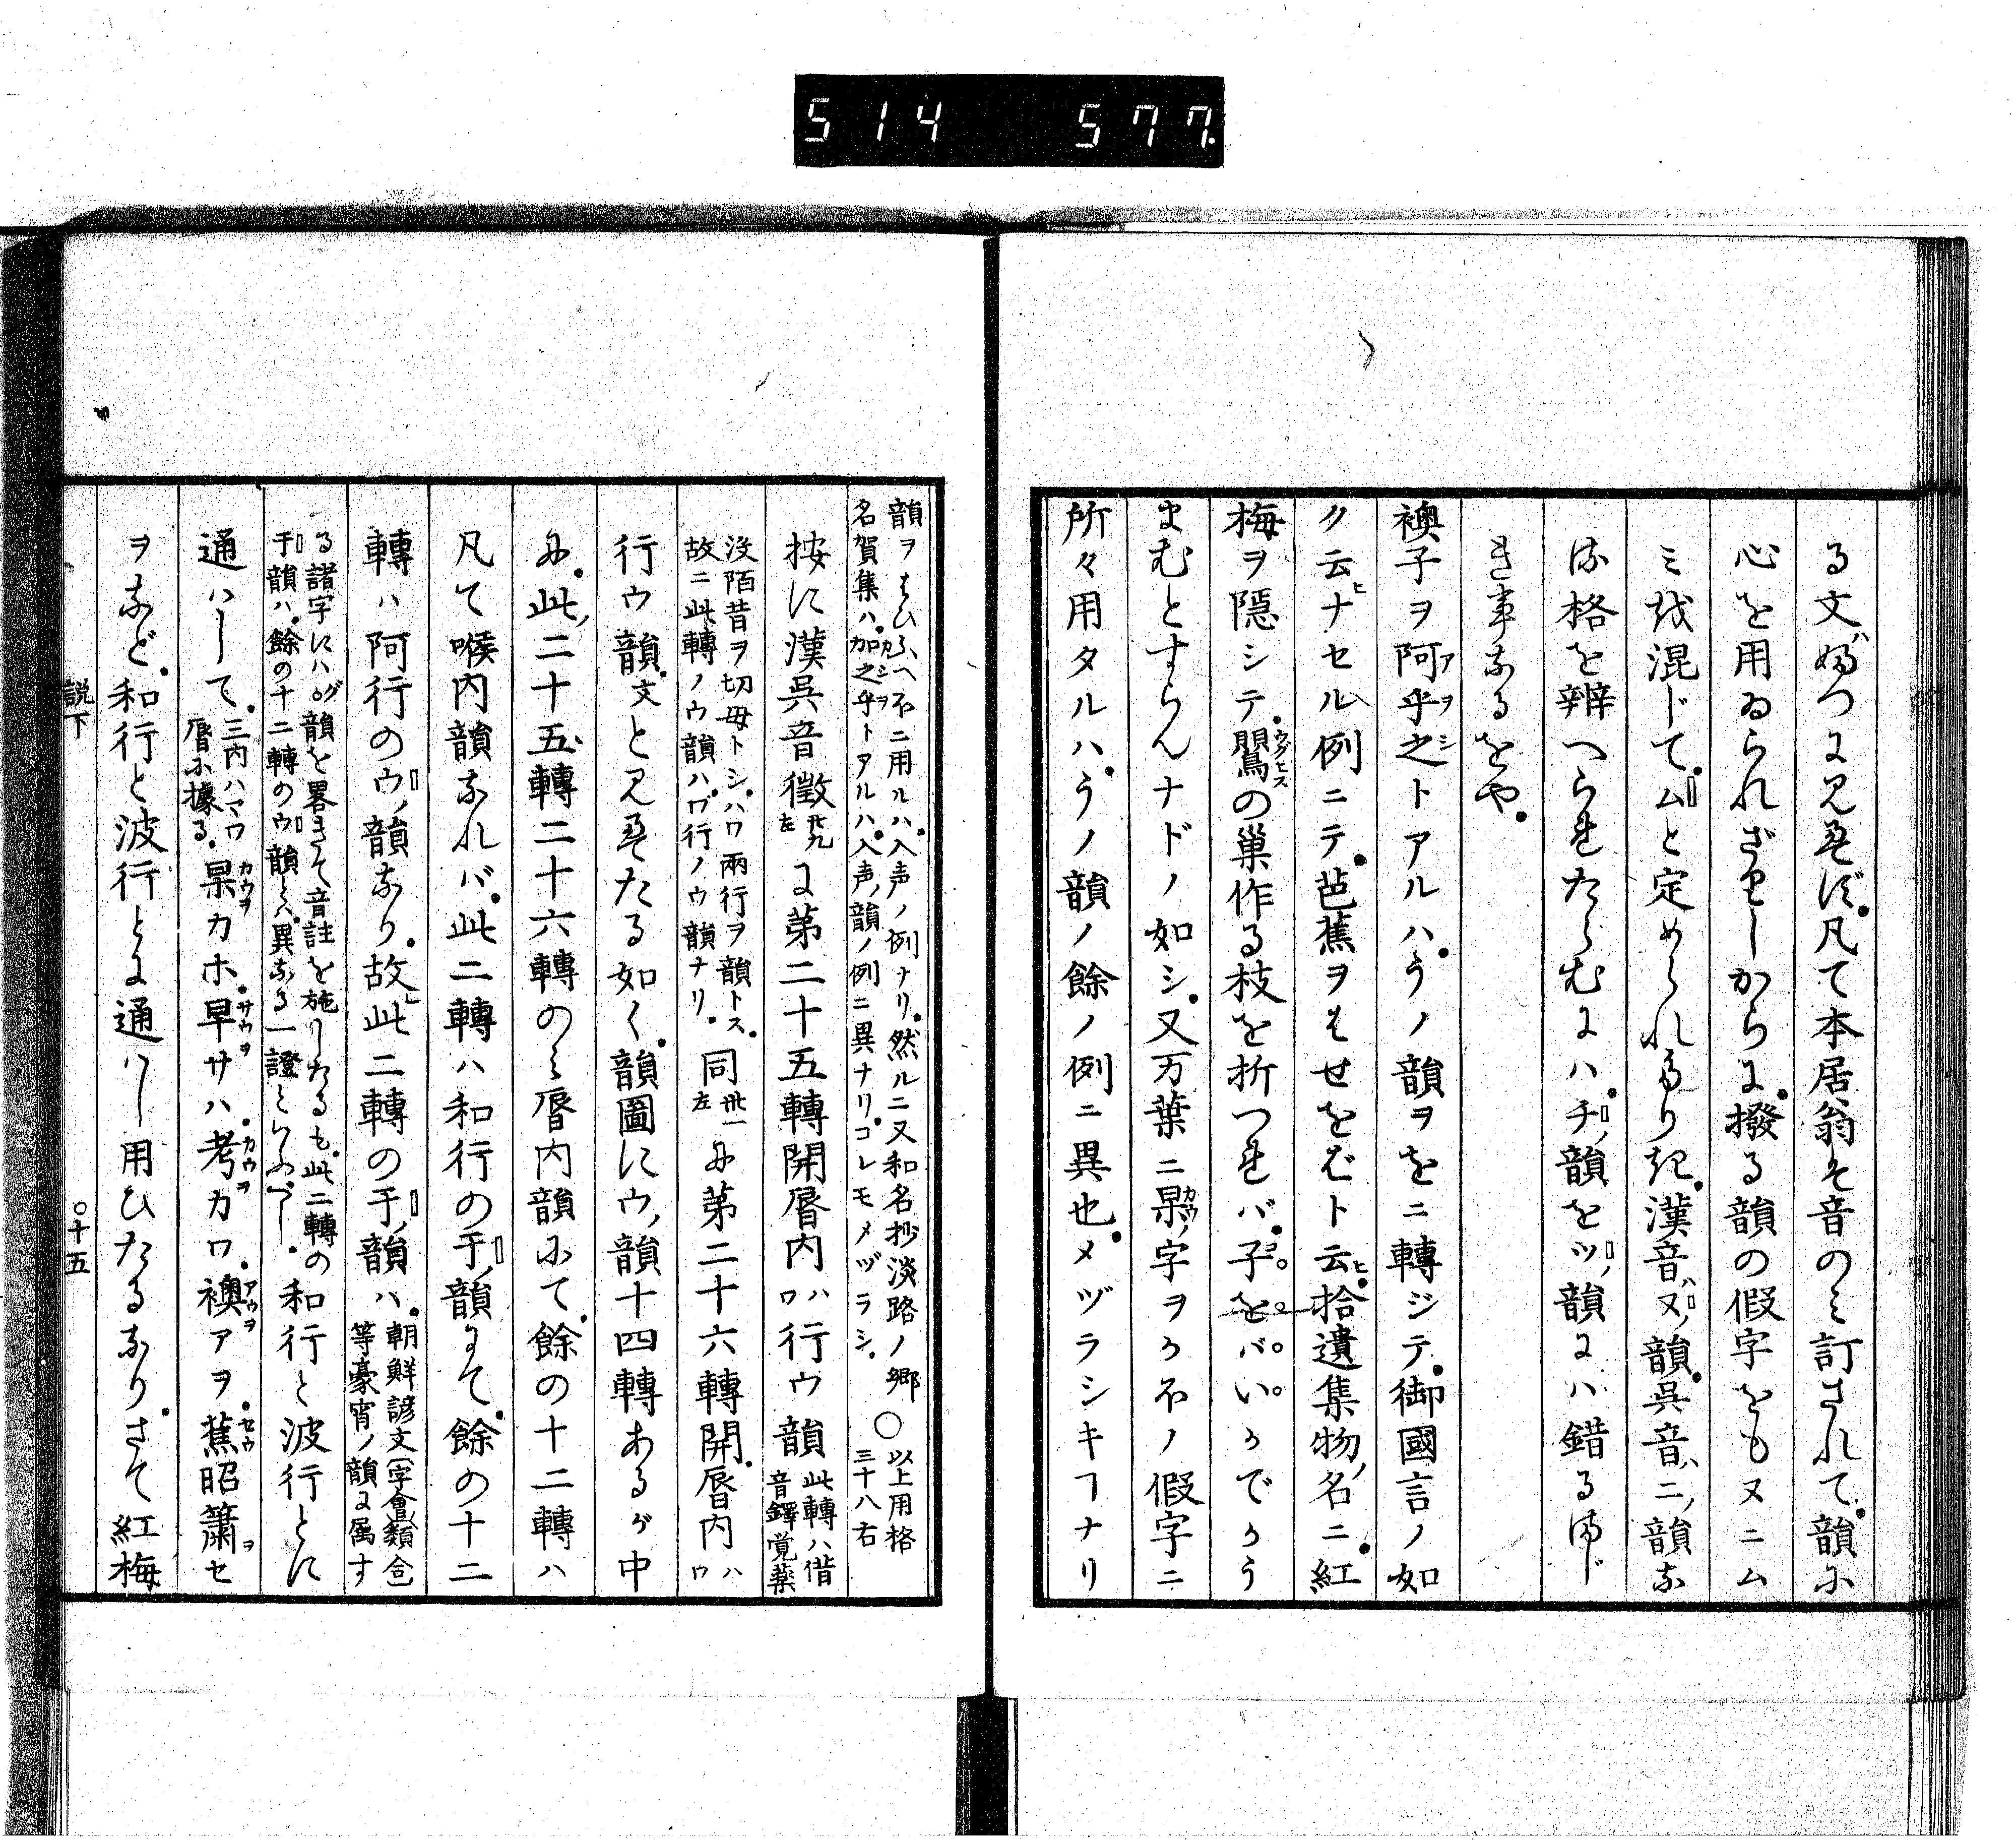 514 577.
る文ぶつに見えず。凡て本居翁は音のミ訂されて。韻に
心を用ゐられざりしからに。撥る韻の假字をもヌニム
ミ攺混じて。ムと定められたりき。漢音ハヌ韻。呉音ハニ韻な
る格を辨へられたらむにハ。チ韻をツ韻にハ錯るまじ
き事なるをや。
襖子ヲ阿乎之トアルハ。うノ韻ヲをニ轉ジテ。御國言ノ如
ク云ヒナセル例ニテ。芭蕉ヲはせをばト云ヒ。拾遺集物名ニ。紅
梅ヲ隱シテ。鸎の巣作る枝を折つればこをバいかでかう
まむとすらんナドノ如シ。又万葉ニ杲ノ字ヲかほノ假字ニ
所々用タルハ。うノ韻ノ餘ノ例ニ異也。メヅラシキヿナリ
韻ヲはひふへほニ用ルハ。入声ノ例ナリ。然ルニ又和名抄淡路ノ郷
名賀集ハ。加之乎トアルハ。入声ノ韻ノ例ニ異ナリ。コレモメヅラシ。
○以上用格
三十八右
按に漢呉音徴
に第二十五轉開唇内ハワ行ウ韻
此轉ハ借
音鐸覚藥
没陌昔ヲ切母トシ。ハワ兩行ヲ韻トス。
故ニ此轉ノウ韻ハ。ワ行ノウ韻ナリ。
同
に第二十六轉開唇内ハワ
行ウ韻。文と見えたる如く。韻圖にウ韻十四轉あるが中
に。此二十五轉二十六轉のミ唇内韻にて。餘の十二轉ハ
凡て喉内韻なれバ。此二轉ハ和行の于韻にて。餘の十二
轉ハ阿行のウ韻なり。故ニ此二轉の于韻ハ。
朝鮮諺文(字會類合)
等豪宵ノ韻に属す
る諸字にハ
韻を畧きて音註を施したるも。此二轉の
于韻ハ。餘の十二轉のウ韻と異なる一證といふべし。
和行と波行とに
通ハして。
三内ハマワ
唇に據る。
杲カホ。早サハ。考カワ。襖アヲ。蕉昭簫セ
ヲなど。和行と波行とに通ハし用ひたるなり。さて紅梅
説下
○十五